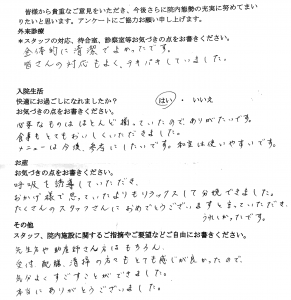 皆様から貴重なご意見をいただき、今後さらに院内態勢の充実に努めてまい
りたいと思います。アンケートにご協力お願い申し上げます。
外来診療
＊スタッフの対応、待合室、診察室等お気づきの点をお書きください。
全体的に清潔でよかったです。
皆さんの対応もよく、テキパキしていました。
入院生活
快適にお過ごしになれましたか？　はい ・ いいえ
お気づきの点をお書きください。
必要なものはほとんど揃っていたのでありがたいです。
食事もとてもおいしくいただきました。
メニューは今後、参考にしたいです。和室は使いやすいです。
お産
お気づきの点をお書きください。
呼吸を誘導していただき、
おかげ様で思っていたよりもリラックスして分娩できました。
たくさんのスタッフさんにおめでとうございますと言っていただき、
うれしかったです。
その他
スタッフ、院内施設に関するご指摘やご要望などご自由にお書きください。
先生方や助産師さん方はもちろん、
受付、配膳、清掃の方々もとても感じが良かったので、
気分よくすごすことができました。
本当にありがとうございました。